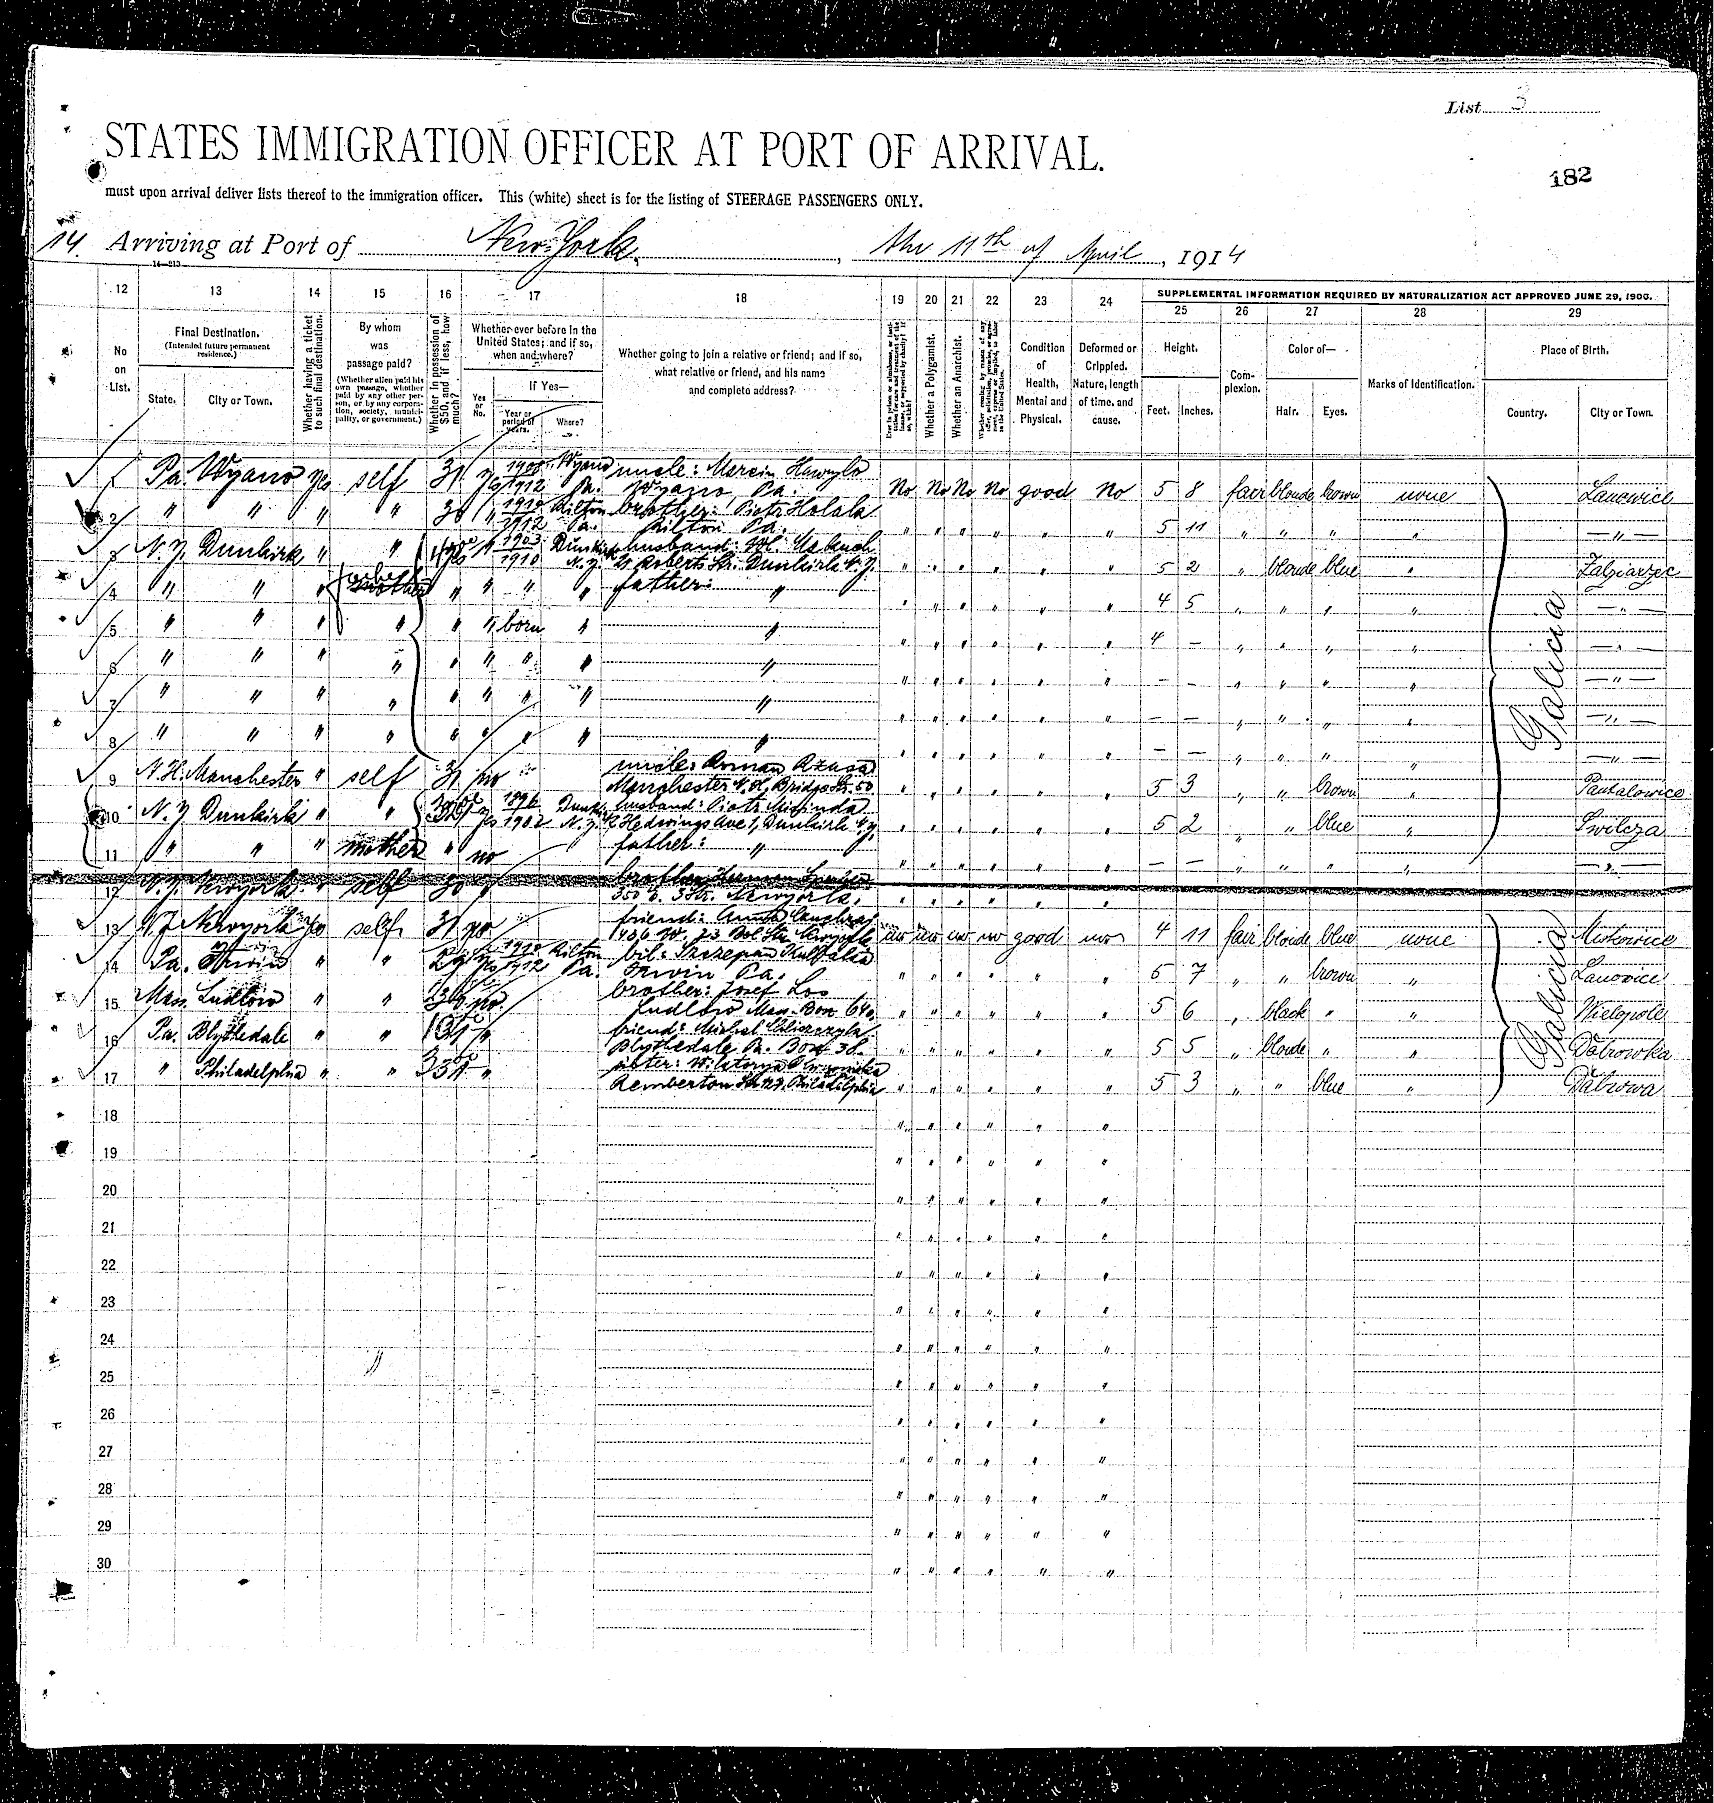 List 3
STATES IMMIGRATION OFFICER AT PORT OF ARRIVAL.
182
must upon arrival deliver lists thereof to the immigration officer. This (white) sheet is for the listing of STEERAGE PASSENGERS ONLY.
14. Arriving at Port of New-York, the 11th of April, 1914
12 13 14 15 16 17 18 19 20 21 22 23 24 SUPPLEMENTAL INFORMATION REQUIRED BY NATURALIZATION ACT APPROVED JUNE 29, 1906.
25 26 27 28 29
No on List.
Final Destination.
(Intended future permanent residence.)
State. City or Town.
Whether having a ticket to such final destination.
By whom was passage paid?
(Whether alien paid his own passage, whether paid by any other person, or by any corporation, society, municipality, or government.)
Whether in possession of $50, and if less, how much?
Whether ever before in the United States; and if so, when and where?
Yes or No.
If Yes—
Year or period of years. Where?
Whether going to join a relative or friend; and if so, what relative or friend, and his name and complete address?
Whether a Polygamist.
Whether an Anarchist.
Condition of Health, Mental and Physical.
Deformed or Crippled. Nature, length of time, and cause.
Height.
Feet. Inches.
Complexion.
Color of—
Hair. Eyes.
Marks of Identification.
Place of Birth.
Country. City or Town.
1 Pa. Wyano yes self 31 yes 1908 1912 Wyano Pa. uncle: Marcin Hawrylo Wyano, Pa. No No No No good No 5 8 fair blonde brown none Lanowice
2 " " " " 30 " 1910 1912 Kilton Pa. brother: Piotr Holala Kilton Pa. " " " " " " 5 11 " " " " — " —
3 N.Y. Dunkirk " " yes 1903 1910 Dunkirk N.Y. husband: Roberts Str. Dunkirk N.Y. " " " " " " 5 2 " blonde blue "
4 " " " mother " " " " father: " " " " " " " 4 5 " " " " — " —
5 " " " " " " born " " " " " " " " 4 — " " " " — " —
6 " " " " " " " " " " " " " " " — — " " " " — " —
7 " " " " " " " " " " " " " " " — — " " " " — " —
8 " " " " " " " " " " " " " " " — — " " " " — " —
9 N.H. Manchester " self 31 no uncle: Roman Manchester N.H, Bridge Str. 50 " " " " " " 5 3 " " brown " Pantalowice
10 N.Y. Dunkirk " " yes 1896 1902 Dunkirk N.Y. husband: Piotr Miginda Ave 1, Dunkirk N.Y. " " " " " " 5 2 " " blue " Swilcza
11 " " " mother " no father: " " " " " " " — — " " " " — " —
Galicia
12 N.Y. Newyork " self 30 " brother: Herman 350 Str. Newyork. " " " " " "
13 N.Y. Newyork yes self 31 no friend: Anna no no no no good no 4 11 fair blonde blue none
14 Pa. Irwin " " yes 1910 1912 Kilton Pa. bil: Szczepan Irwin Pa. " " " " " " 5 7 " " brown " Lanovice
15 Mass. Ludlow " " no brother: Josef Los Ludlow Mass. Box 640 " " " " " " 5 6 " black " " Wielopole
16 Pa. Blythedale " " " friend: Michal Blythedale Pa. Box 38. " " " " " " 5 5 " blonde " " Dabrowka
17 " Philadelphia " " " sister: Wiktorya Pemberton Str. Philadelphia " " " " " " 5 3 " " blue " Dabrowa
Galicia
18 " " " " " "
19 " " " " " "
20 " " " " " "
21 " " " " " "
22 " " " " " "
23 " " " " " "
24 " " " " " "
25 " " " " " "
26 " " " " " "
27 " " " " " "
28 " " " " " "
29 " " " " " "
30 " " " " " "